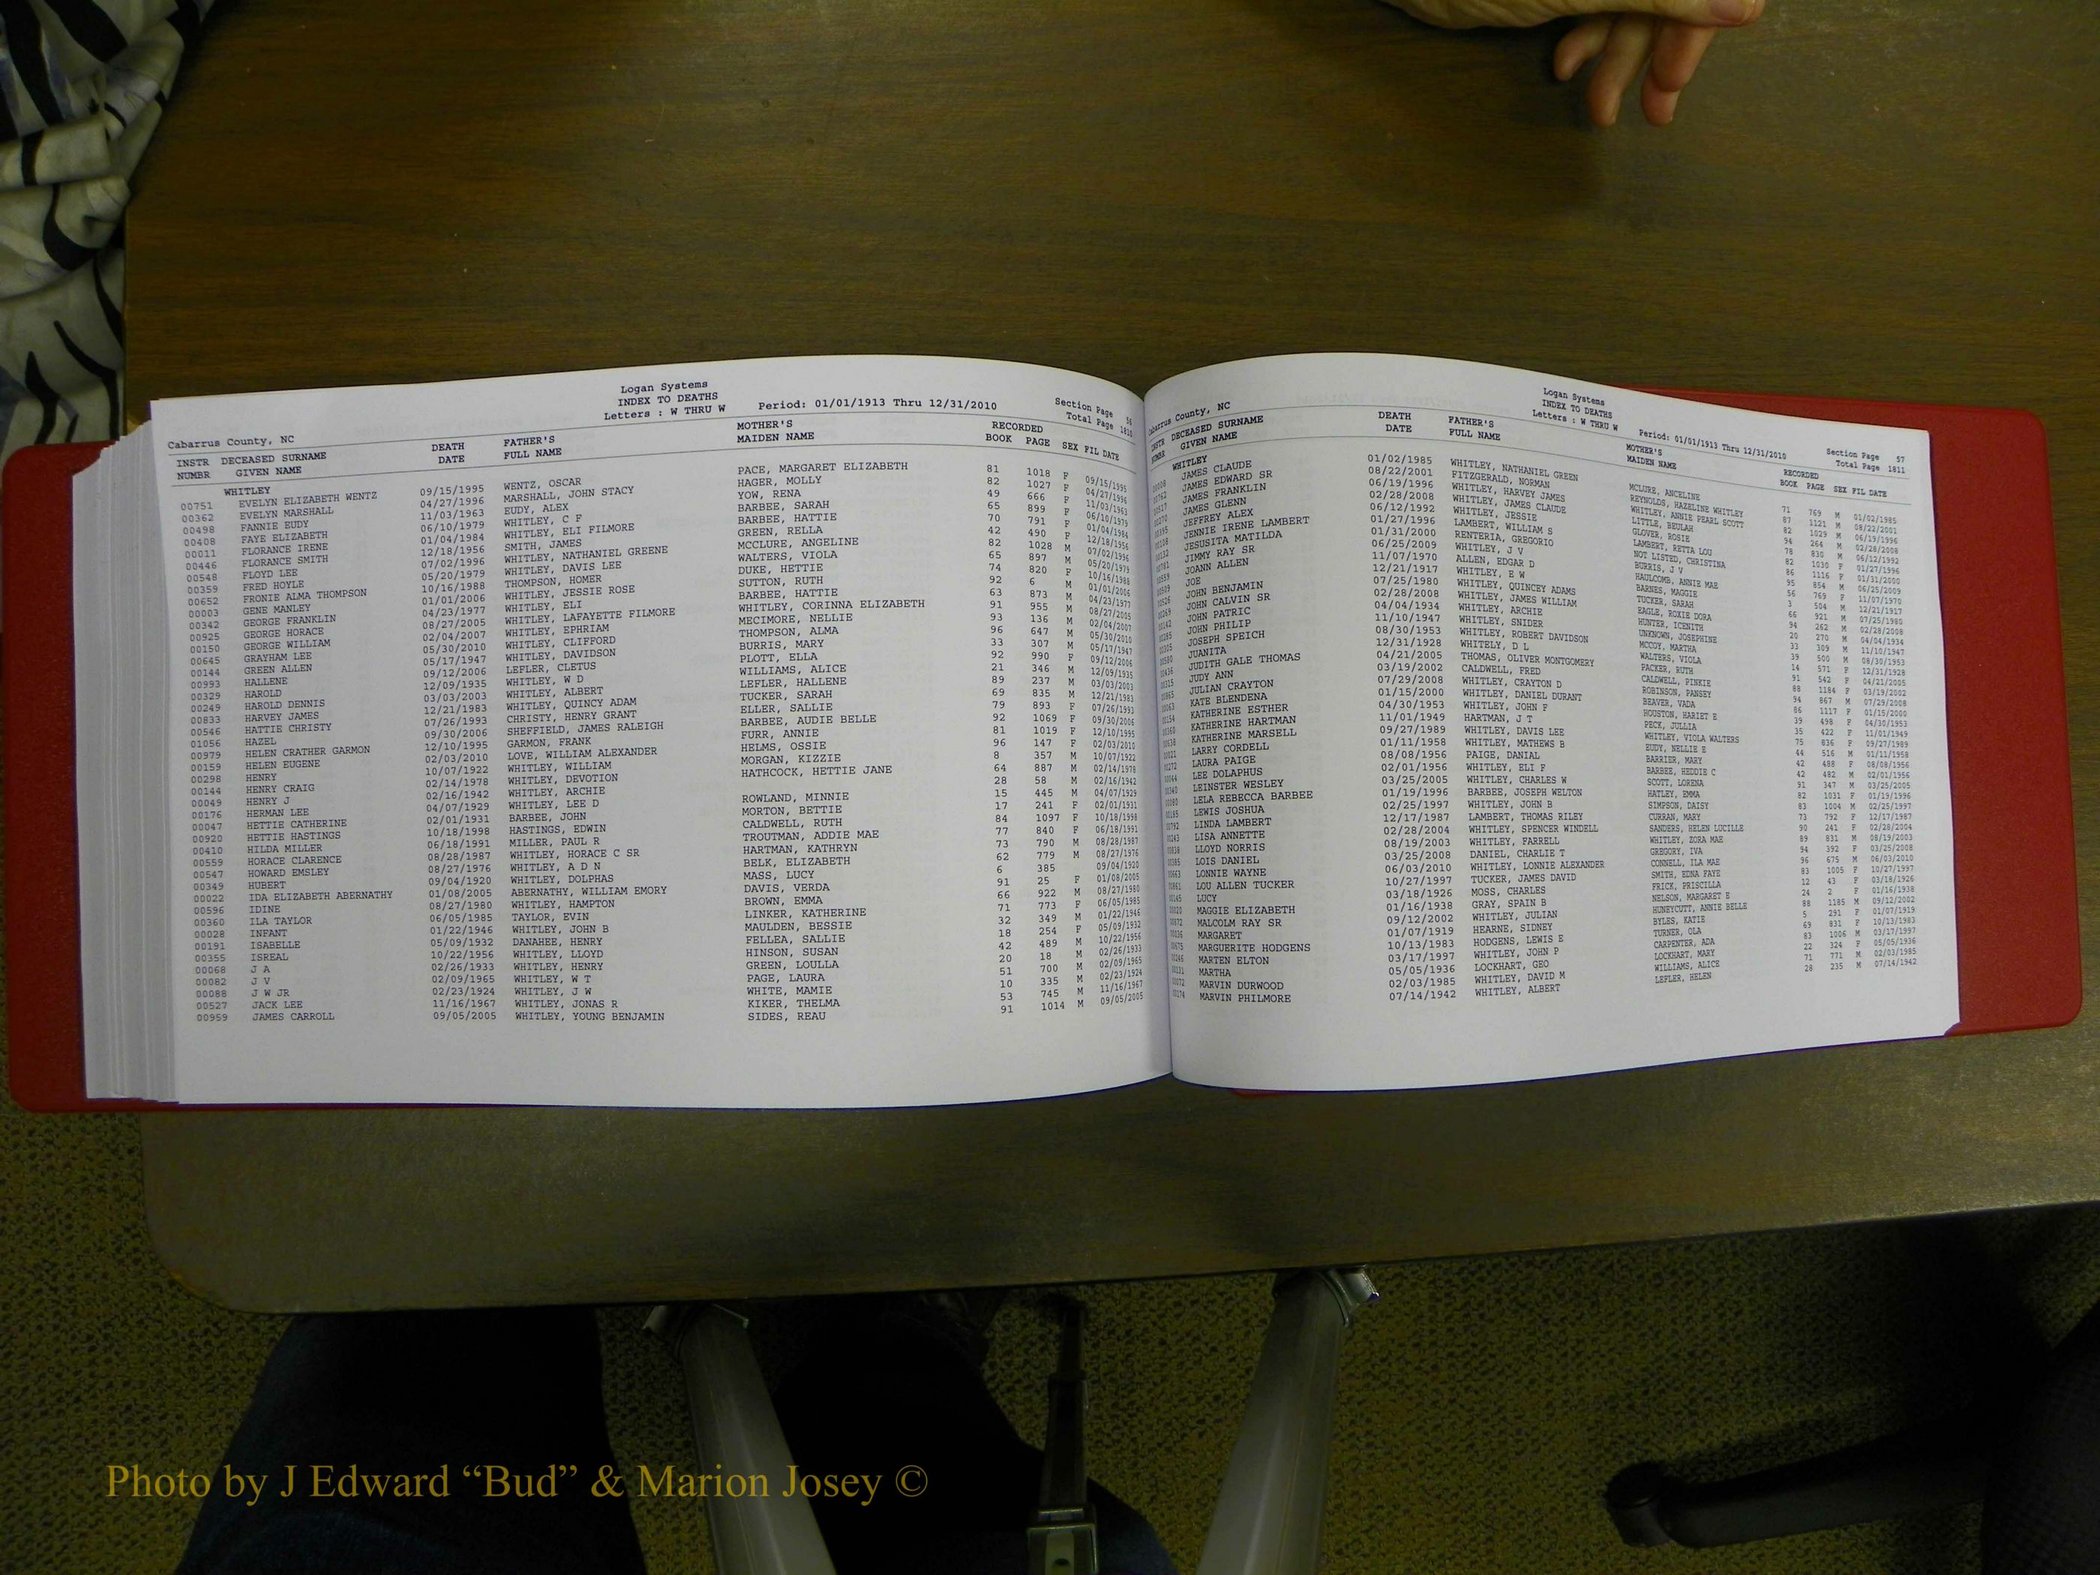 Logan Systems
INDEX TO DEATHS
Letters : W THRU W Period: 01/01/1913 Thru 12/31/2010
Section Page 56
Total Page 1810
Cabarrus County, NC
INSTR DECEASED SURNAME DEATH FATHER'S MOTHER'S RECORDED
NUMBR GIVEN NAME DATE FULL NAME MAIDEN NAME BOOK PAGE SEX FIL DATE
WHITLEY
00751 EVELYN ELIZABETH WENTZ 09/15/1995 WENTZ, OSCAR PACE, MARGARET ELIZABETH 81 1018 F 09/15/1995
00362 EVELYN MARSHALL 04/27/1996 MARSHALL, JOHN STACY HAGER, MOLLY 82 1027 F 04/27/1996
00498 FANNIE EUDY 11/03/1963 EUDY, ALEX YOW, RENA 49 666 F 11/03/1963
00408 FAYE ELIZABETH 06/10/1979 WHITLEY, C F BARBEE, SARAH 65 899 F 06/10/1979
00011 FLORANCE IRENE 01/04/1984 WHITLEY, ELI FILMORE BARBEE, HATTIE 70 791 F 01/04/1984
00446 FLORANCE SMITH 12/18/1956 SMITH, JAMES GREEN, RELLA 42 490 F 12/18/1956
00548 FLOYD LEE 07/02/1996 WHITLEY, NATHANIEL GREENE MCCLURE, ANGELINE 82 1028 M 07/02/1996
00359 FRED HOYLE 05/20/1979 WHITLEY, DAVIS LEE WALTERS, VIOLA 65 897 M 05/20/1979
00652 FRONIE ALMA THOMPSON 10/16/1988 THOMPSON, HOMER DUKE, HETTIE 74 820 F 10/16/1988
00003 GENE MANLEY 01/01/2006 WHITLEY, JESSIE ROSE SUTTON, RUTH 92 6 M 01/01/2006
00342 GEORGE FRANKLIN 04/23/1977 WHITLEY, ELI BARBEE, HATTIE 63 873 M 04/23/1977
00925 GEORGE HORACE 08/27/2005 WHITLEY, LAFAYETTE FILMORE WHITLEY, CORINNA ELIZABETH 91 955 M 08/27/2005
00150 GEORGE WILLIAM 02/04/2007 WHITLEY, EPHRIAM MECIMORE, NELLIE 93 136 M 02/04/2007
00645 GRAYHAM LEE 05/30/2010 WHITLEY, CLIFFORD THOMPSON, ALMA 96 647 M 05/30/2010
00144 GREEN ALLEN 05/17/1947 WHITLEY, DAVIDSON BURRIS, MARY 33 307 M 05/17/1947
00993 HALLENE 09/12/2006 LEFLER, CLETUS PLOTT, ELLA 92 990 F 09/12/2006
00329 HAROLD 12/09/1935 WHITLEY, W D WILLIAMS, ALICE 21 346 M 12/09/1935
00249 HAROLD DENNIS 03/03/2003 WHITLEY, ALBERT LEFLER, HALLENE 89 237 M 03/03/2003
00833 HARVEY JAMES 12/21/1983 WHITLEY, QUINCY ADAM TUCKER, SARAH 69 835 M 12/21/1983
00546 HATTIE CHRISTY 07/26/1993 CHRISTY, HENRY GRANT ELLER, SALLIE 79 893 F 07/26/1993
01056 HAZEL 09/30/2006 SHEFFIELD, JAMES RALEIGH BARBEE, AUDIE BELLE 92 1069 F 09/30/2006
00979 HELEN CRATHER GARMON 12/10/1995 GARMON, FRANK FURR, ANNIE 81 1019 F 12/10/1995
00159 HELEN EUGENE 02/03/2010 LOVE, WILLIAM ALEXANDER HELMS, OSSIE 96 147 F 02/03/2010
00298 HENRY 10/07/1922 WHITLEY, WILLIAM MORGAN, KIZZIE 8 357 M 10/07/1922
00144 HENRY CRAIG 02/14/1978 WHITLEY, DEVOTION HATHCOCK, HETTIE JANE 64 887 M 02/14/1978
00049 HENRY J 02/16/1942 WHITLEY, ARCHIE 28 58 M 02/16/1942
00176 HERMAN LEE 04/07/1929 WHITLEY, LEE D ROWLAND, MINNIE 15 445 M 04/07/1929
00047 HETTIE CATHERINE 02/01/1931 BARBEE, JOHN MORTON, BETTIE 17 241 F 02/01/1931
00920 HETTIE HASTINGS 10/18/1998 HASTINGS, EDWIN CALDWELL, RUTH 84 1097 F 10/18/1998
00410 HILDA MILLER 06/18/1991 MILLER, PAUL R TROUTMAN, ADDIE MAE 77 840 F 06/18/1991
00559 HORACE CLARENCE 08/28/1987 WHITLEY, HORACE C SR HARTMAN, KATHRYN 73 790 M 08/28/1987
00547 HOWARD EMSLEY 08/27/1976 WHITLEY, A D N BELK, ELIZABETH 62 779 M 08/27/1976
00349 HUBERT 09/04/1920 WHITLEY, DOLPHAS MASS, LUCY 6 385 09/04/1920
00022 IDA ELIZABETH ABERNATHY 01/08/2005 ABERNATHY, WILLIAM EMORY DAVIS, VERDA 91 25 F 01/08/2005
00596 IDINE 08/27/1980 WHITLEY, HAMPTON BROWN, EMMA 66 922 M 08/27/1980
00360 ILA TAYLOR 06/05/1985 TAYLOR, EVIN LINKER, KATHERINE 71 773 F 06/05/1985
00028 INFANT 01/22/1946 WHITLEY, JOHN B MAULDEN, BESSIE 32 349 M 01/22/1946
00191 ISABELLE 05/09/1932 DANAHEE, HENRY FELLEA, SALLIE 18 254 F 05/09/1932
00355 ISREAL 10/22/1956 WHITLEY, LLOYD HINSON, SUSAN 42 489 M 10/22/1956
00068 J A 02/26/1933 WHITLEY, HENRY GREEN, LOULLA 20 18 M 02/26/1933
00082 J V 02/09/1965 WHITLEY, W T PAGE, LAURA 51 700 M 02/09/1965
00088 J W JR 02/23/1924 WHITLEY, J W WHITE, MAMIE 10 335 M 02/23/1924
00527 JACK LEE 11/16/1967 WHITLEY, JONAS R KIKER, THELMA 53 745 M 11/16/1967
00959 JAMES CARROLL 09/05/2005 WHITLEY, YOUNG BENJAMIN SIDES, REAU 91 1014 M 09/05/2005
Logan Systems
INDEX TO DEATHS
Letters : W THRU W Period: 01/01/1913 Thru 12/31/2010
Section Page 57
Total Page 1811
Cabarrus County, NC
INSTR DECEASED SURNAME DEATH FATHER'S MOTHER'S RECORDED
NUMBR GIVEN NAME DATE FULL NAME MAIDEN NAME BOOK PAGE SEX FIL DATE
WHITLEY
JAMES CLAUDE 01/02/1985 WHITLEY, NATHANIEL GREEN MCLURE, ANCELINE 71 769 M 01/02/1985
JAMES EDWARD SR 08/22/2001 FITZGERALD, NORMAN REYNOLDS, HAZELINE WHITLEY 87 1121 M 08/22/2001
JAMES FRANKLIN 06/19/1996 WHITLEY, HARVEY JAMES WHITLEY, ANNIE PEARL SCOTT 82 1029 M 06/19/1996
JAMES GLENN 02/28/2008 WHITLEY, JAMES CLAUDE LITTLE, BEULAH 94 264 M 02/28/2008
JEFFREY ALEX 06/12/1992 WHITLEY, JESSIE GLOVER, ROSIE 78 830 M 06/12/1992
JENNIE IRENE LAMBERT 01/27/1996 LAMBERT, WILLIAM S LAMBERT, RETTA LOU 82 1030 F 01/27/1996
JESUSITA MATILDA 01/31/2000 RENTERIA, GREGORIO NOT LISTED, CHRISTINA 86 1116 F 01/31/2000
JIMMY RAY SR 06/25/2009 WHITLEY, J V BURRIS, J V 95 854 M 06/25/2009
JOANN ALLEN 11/07/1970 ALLEN, EDGAR D HAULCOMB, ANNIE MAE 56 769 F 11/07/1970
JOE 12/21/1917 WHITLEY, E W BARNES, MAGGIE 3 504 M 12/21/1917
JOHN BENJAMIN 07/25/1980 WHITLEY, QUINCY ADAMS TUCKER, SARAH 66 921 M 07/25/1980
JOHN CALVIN SR 02/28/2008 WHITLEY, JAMES WILLIAM EAGLE, ROXIE DORA 94 262 M 02/28/2008
JOHN PATRIC 04/04/1934 WHITLEY, ARCHIE HUNTER, ICENITH 20 270 M 04/04/1934
JOHN PHILIP 11/10/1947 WHITLEY, SNIDER UNKNOWN, JOSEPHINE 33 309 M 11/10/1947
JOSEPH SPEICH 08/30/1953 WHITLEY, ROBERT DAVIDSON MCCOY, MARTHA 39 500 M 08/30/1953
JUANITA 12/31/1928 WHITELY, D L WALTERS, VIOLA 14 571 F 12/31/1928
JUDITH GALE THOMAS 04/21/2005 THOMAS, OLIVER MONTGOMERY PACKER, RUTH 91 542 F 04/21/2005
JUDY ANN 03/19/2002 CALDWELL, FRED CALDWELL, PINKIE 88 1184 F 03/19/2002
JULIAN CRAYTON 07/29/2008 WHITLEY, CRAYTON D ROBINSON, PANSEY 94 867 M 07/29/2008
KATE BLENDENA 01/15/2000 WHITLEY, DANIEL DURANT BEAVER, VADA 86 1117 F 01/15/2000
KATHERINE ESTHER 04/30/1953 WHITLEY, JOHN F HOUSTON, HARIET E 39 498 F 04/30/1953
KATHERINE HARTMAN 11/01/1949 HARTMAN, J T PECK, JULLIA 35 422 F 11/01/1949
KATHERINE MARSELL 09/27/1989 WHITLEY, DAVIS LEE WHITLEY, VIOLA WALTERS 75 836 F 09/27/1989
LARRY CORDELL 01/11/1958 WHITLEY, MATHEWS B EUDY, NELLIE E 44 516 M 01/11/1958
LAURA PAIGE 08/08/1956 PAIGE, DANIAL BARRIER, MARY 42 488 F 08/08/1956
LEE DOLAPHUS 02/01/1956 WHITLEY, ELI F BARBEE, HEDDIE C 42 482 M 02/01/1956
LEINSTER WESLEY 03/25/2005 WHITLEY, CHARLES W SCOTT, LORENA 91 347 M 03/25/2005
LELA REBECCA BARBEE 01/19/1996 BARBEE, JOSEPH WELTON HATLEY, EMMA 82 1031 F 01/19/1996
LEWIS JOSHUA 02/25/1997 WHITLEY, JOHN B SIMPSON, DAISY 83 1004 M 02/25/1997
LINDA LAMBERT 12/17/1987 LAMBERT, THOMAS RILEY CURRAN, MARY 73 792 F 12/17/1987
LISA ANNETTE 02/28/2004 WHITLEY, SPENCER WINDELL SANDERS, HELEN LUCILLE 90 241 F 02/28/2004
LLOYD NORRIS 08/19/2003 WHITLEY, PARRELL WHITLEY, ZORA MAE 89 831 M 08/19/2003
LOIS DANIEL 03/25/2008 DANIEL, CHARLIE T GREGORY, IVA 94 392 F 03/25/2008
LONNIE WAYNE 06/03/2010 WHITLEY, LONNIE ALEXANDER CONNELL, ILA MAE 96 675 M 06/03/2010
LOU ALLEN TUCKER 10/27/1997 TUCKER, JAMES DAVID SMITH, EDNA FAYE 83 1005 F 10/27/1997
LUCY 03/18/1926 MOSS, CHARLES FRICK, PRISCILLA 12 43 F 03/18/1926
MAGGIE ELIZABETH 01/16/1938 GRAY, SPAIN B NELSON, MARGARET E 24 2 F 01/16/1938
MALCOLM RAY SR 09/12/2002 WHITLEY, JULIAN HUNEYCUTT, ANNIE BELLE 88 1185 M 09/12/2002
MARGARET 01/07/1919 HEARNE, SIDNEY BYLES, KATIE 5 291 F 01/07/1919
MARGUERITE HODGENS 10/13/1983 HODGENS, LEWIS E TURNER, OLA 69 831 F 10/13/1983
MARTEN ELTON 03/17/1997 WHITLEY, JOHN P CARPENTER, ADA 83 1006 M 03/17/1997
MARTHA 05/05/1936 LOCKHART, GEO LOCKHART, MARY 22 324 F 05/05/1936
MARVIN DURWOOD 02/03/1985 WHITLEY, DAVID M WILLIAMS, ALICE 71 771 M 02/03/1985
MARVIN PHILMORE 07/14/1942 WHITLEY, ALBERT LEFLER, HELEN 28 235 M 07/14/1942
Photo by J Edward “Bud” & Marion Josey ©